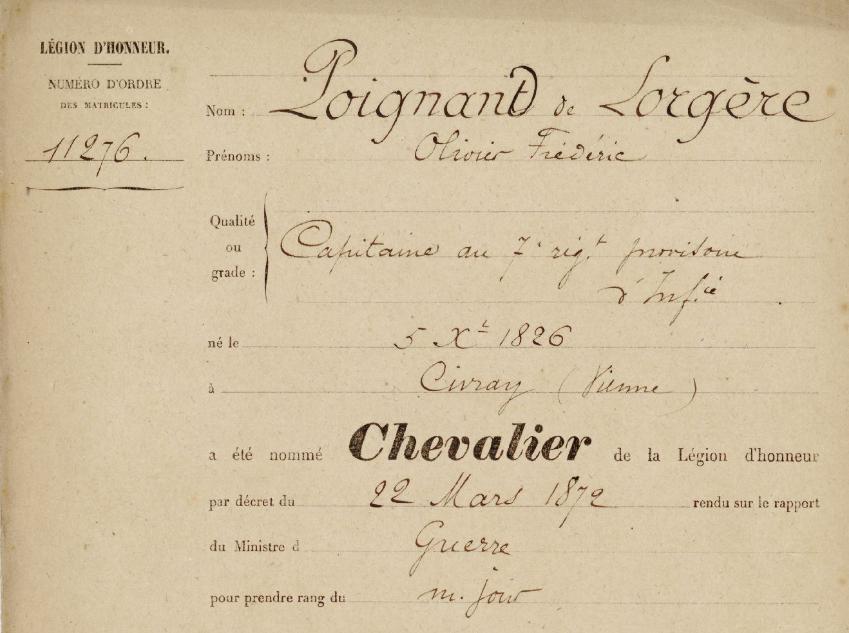 LÉGION D'HONNEUR.
NUMÉRO D'ORDRE
DES MATRICULES :
11276.
Nom : Poignant de Lorgère
Prénoms : Olivier Frédéric
Qualité ou grade : Capitaine au 7e rég.t provisoire
d'Inf.ie
né le 5 Xbre 1826
à Civray (Vienne)
a été nommé Chevalier de la Légion d'honneur
par décret du 22 Mars 1872 rendu sur le rapport
du Ministre d Guerre
pour prendre rang du m. jour